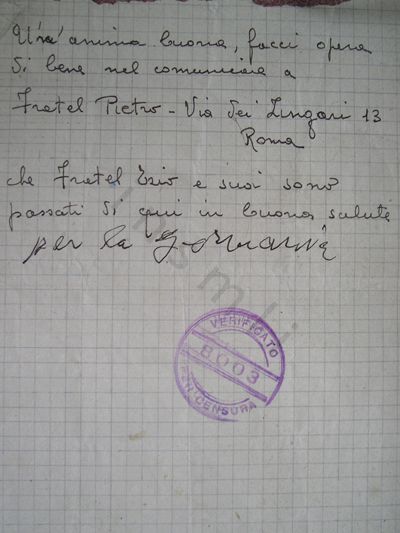 Un'anima buona, facci opera
di bene nel comunicare a
Fratel Pietro - Via dei Zingari 13
Roma
che Fratel Ezio e suoi sono
passati di qui in buona salute
per la Germania
VERIFICATO
8003
PER CENSURA